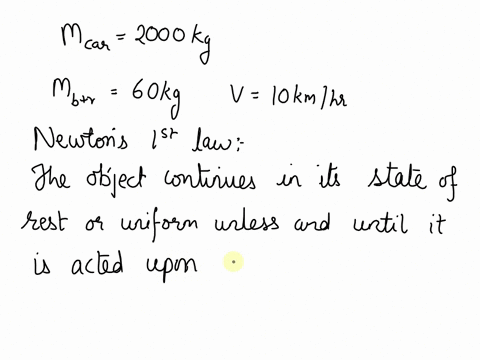 M car = 2000 kg
M b+r = 60 kg V = 10 km/hr
Newton's 1st law:-
The object continues in its state of
rest or uniform unless and until it
is acted upon